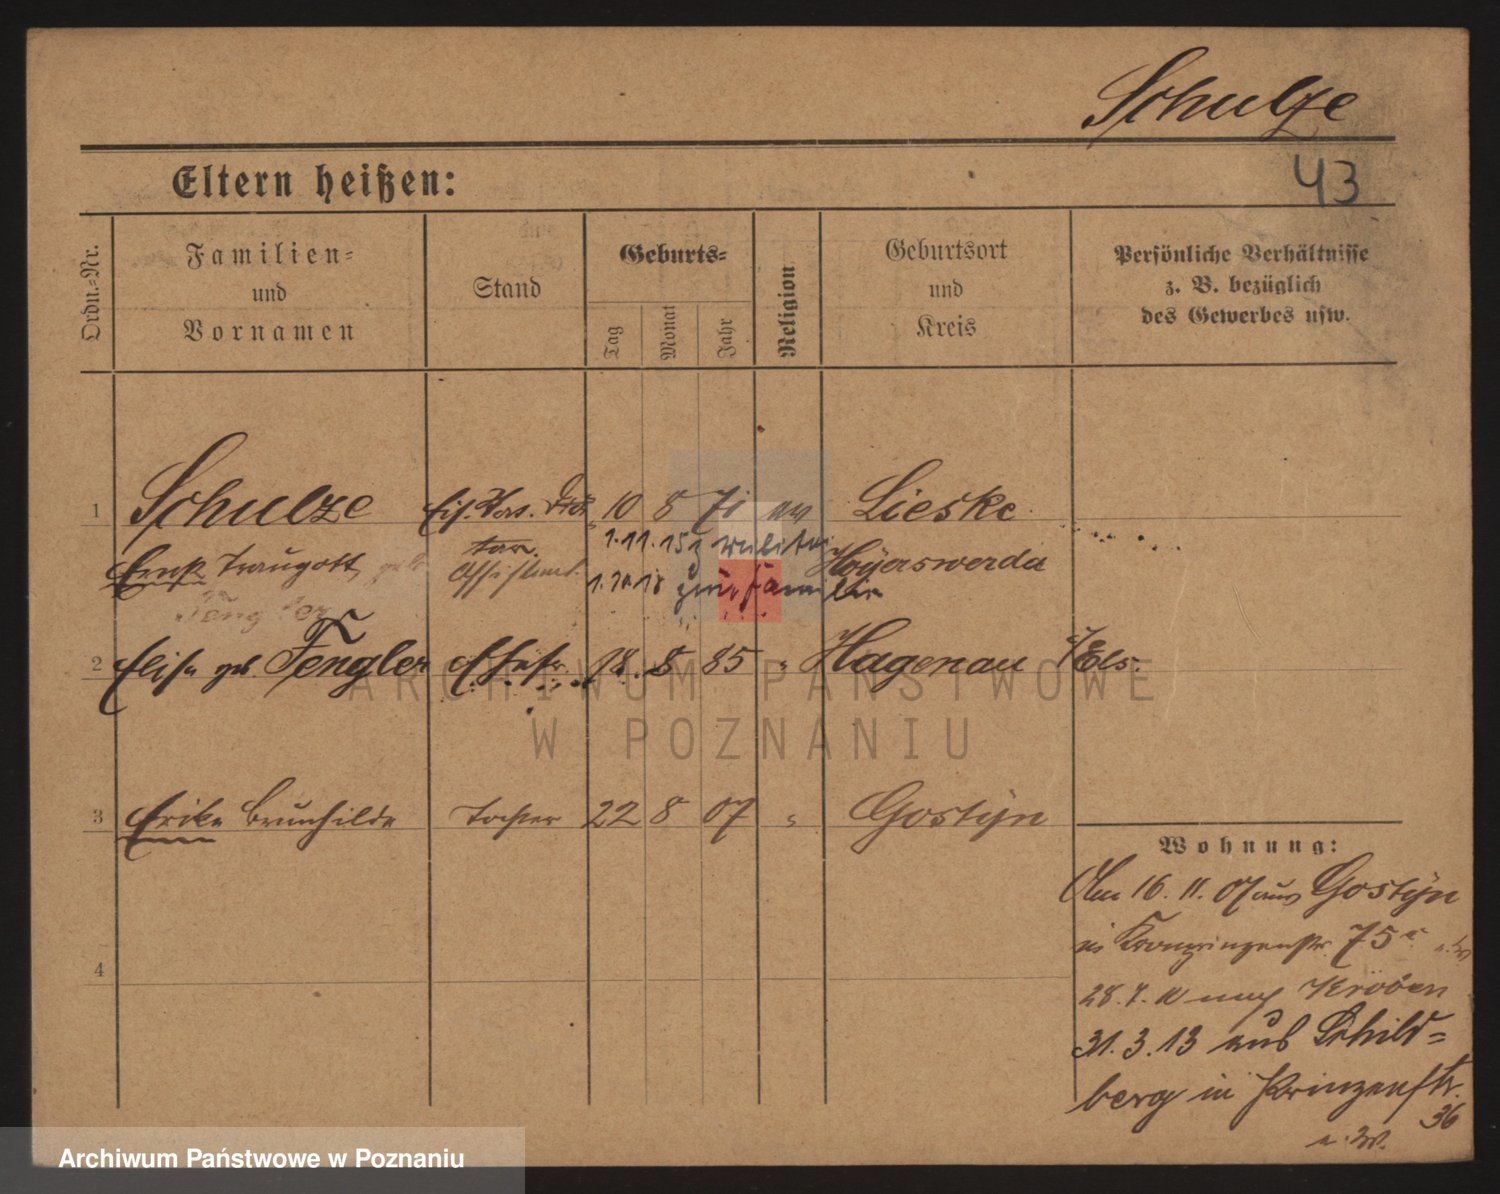 Schulze
Eltern heißen:
43
Ordn.=Nr.
Familien=
und
Vornamen
Stand
Geburts=
Tag
Monat
Jahr
Religion
Geburtsort
und
Kreis
Persönliche Verhältnisse
z. B. bezüglich
des Gewerbes usw.
1 Schulze 10 8 71 ev Lieske
Ernst Traugott, Assistent. Hoyerswerda
1.11.15
zur Familie
Fengler
2 Elise geb. Fengler Ehefr. 18. 8 85 " Hagenau i/Els.
3 Erika Brunhilde Tochter 22 8 07 " Gostÿn
4
Wohnung:
Am 16. 11. 07 aus Gostÿn
in Kronprinzenstr. 75a
28. 7. 10 nach Kröben
31. 3. 13 aus Schild=
berg in Prinzenstr.
36
ARCHIWUM PAŃSTWOWE
W POZNANIU
Archiwum Państwowe w Poznaniu